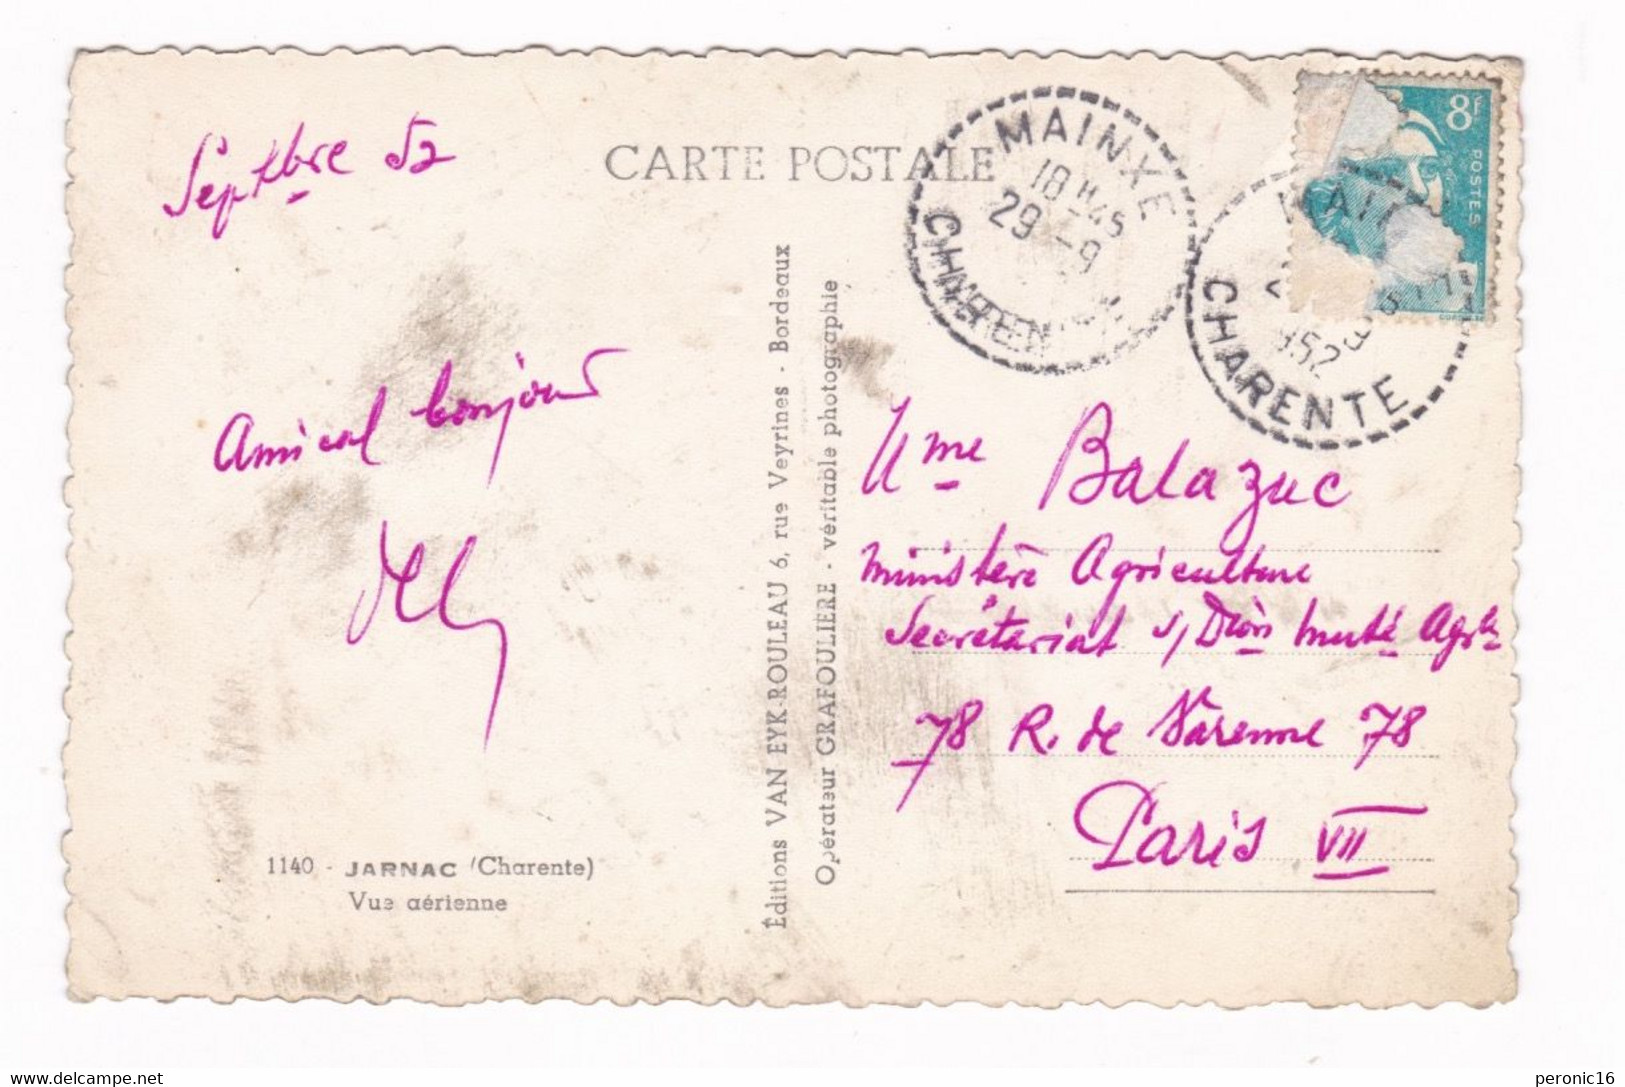 Septbre 52
CARTE POSTALE
MAINXE
18 H 45
29 - 9
CHARENTE
8F
POSTES
CHARENTE
Amical bonjour
Éditions VAN EYK-ROULEAU 6, rue Veyrines - Bordeaux
Opérateur GRAFOULIERE - véritable photographie
Mme Balazuc
Ministère Agriculture
Secrétariat s/Dion Agrle
78 R. de Varenne 78
Paris VII
1140 - JARNAC (Charente)
Vue aérienne
peronic16